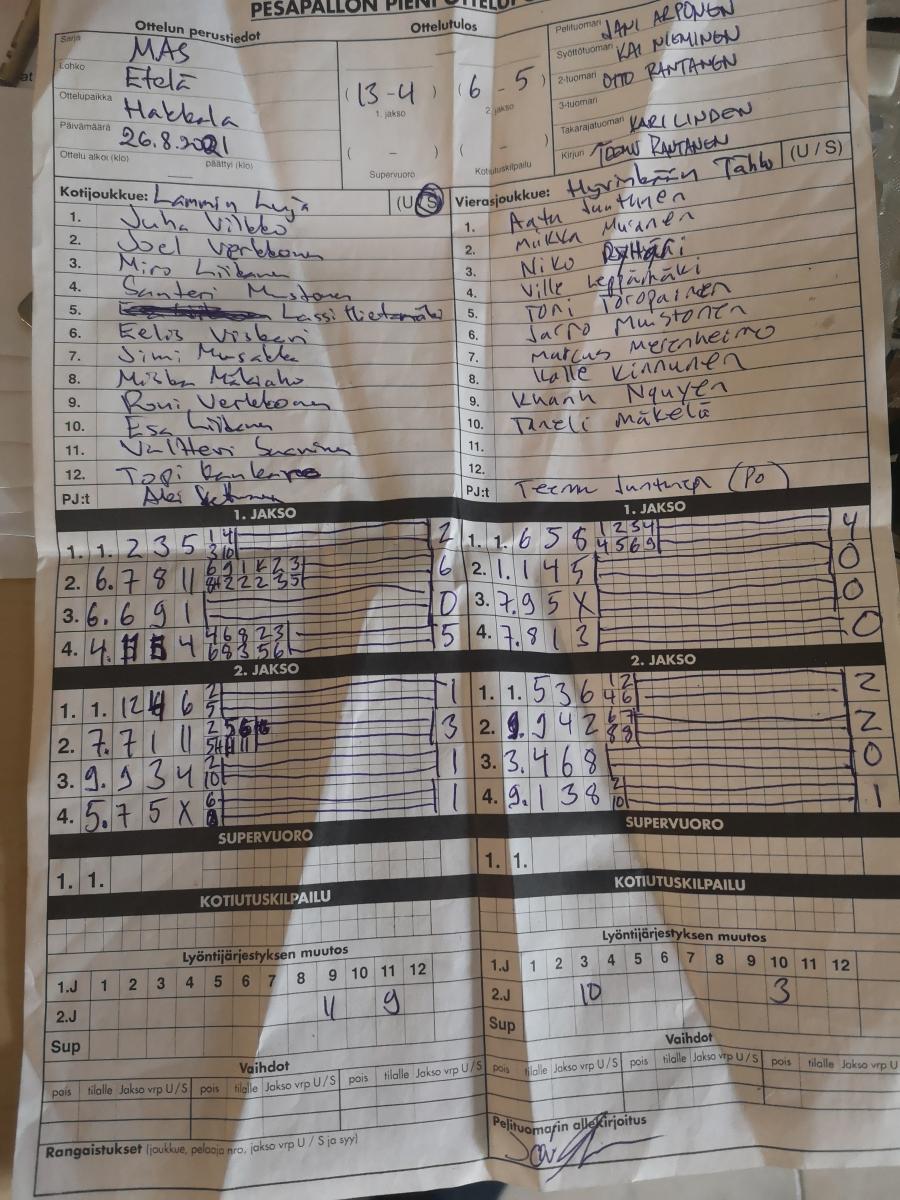 PESÄPALLON PIENI
Ottelun perustiedot
Sarja MAS
Lohko Etelä
Ottelupaikka Hakkala
Päivämäärä 26.8.2021
Ottelu alkoi (klo) päättyi (klo)
Ottelutulos
(13 - 4) (6 - 5)
1. jakso 2. jakso
( - ) ( - )
Supervuoro Kotiutuskilpailu
Pelituomari JANI ARPONEN
Syöttötuomari KAI NIEMINEN
2-tuomari OTTO RANTANEN
3-tuomari
Takarajatuomari KARI LINDEN
Kirjuri TEEMU RANTANEN
Kotijoukkue: Lammin Luja (U/S)
1. Juha Vilkko
2. Joel Verkkonen
3. Miro Liikanen
4. Santeri Mustonen
5. Lassi Hietamäki
6. Eelis Viskari
7. Jimi Musakka
8. Miska Mäkiaho
9. Roni Verkkonen
10. Esa Liikanen
11. Valtteri Saarinen
12. Topi
PJ:t Aki
Vierasjoukkue: Hyvinkään Tahko (U / S)
1. Aatu Juntunen
2. Miikka Muranen
3. Niko
4. Ville Leppämäki
5. Toni Toropainen
6. Jarno Muistonen
7. Marcus Merenheimo
8. Kalle Kinnunen
9. Khanh Nguyen
10. Taneli Mäkelä
11.
12.
PJ:t Teemu Juntunen (Po)
1. JAKSO
1. 1. 2 3 5 1 4 2
3 10
2. 6. 7 8 11 6 9 1 K 2 3 6
3. 6. 6 9 1 0
4. 4. 4 4 6 8 2 3 5
6 8 3 5 6
1. JAKSO
1. 1. 6 5 8 1 2 3 4 4
4 5 6 9
2. 1. 1 4 5 0
3. 7. 9 5 X 0
4. 7. 8 1 3 0
2. JAKSO
1. 1. 12 6 2 1
5
2. 7. 7 1 11 3
3. 9. 9 3 4 2 1
10
4. 5. 7 5 X 6 1
2. JAKSO
1. 1. 5 3 6 1 2 2
4 6
2. 9. 9 4 2 6 7 2
8 8
3. 3. 4 6 8 0
4. 9. 1 3 8 2 1
10
SUPERVUORO
1. 1.
SUPERVUORO
1. 1.
KOTIUTUSKILPAILU
KOTIUTUSKILPAILU
Lyöntijärjestyksen muutos
1.J 1 2 3 4 5 6 7 8 9 10 11 12
2.J 11 9
Sup
Lyöntijärjestyksen muutos
1.J 1 2 3 4 5 6 7 8 9 10 11 12
2.J 10 3
Sup
Vaihdot
pois tilalle Jakso vrp U / S pois tilalle Jakso vrp U / S pois tilalle Jakso vrp U / S
Vaihdot
pois tilalle Jakso vrp U / S pois tilalle Jakso vrp U / S pois tilalle Jakso vrp U
Rangaistukset (joukkue, pelaaja nro, jakso vrp U / S ja syy)
Pelituomarin allekirjoitus